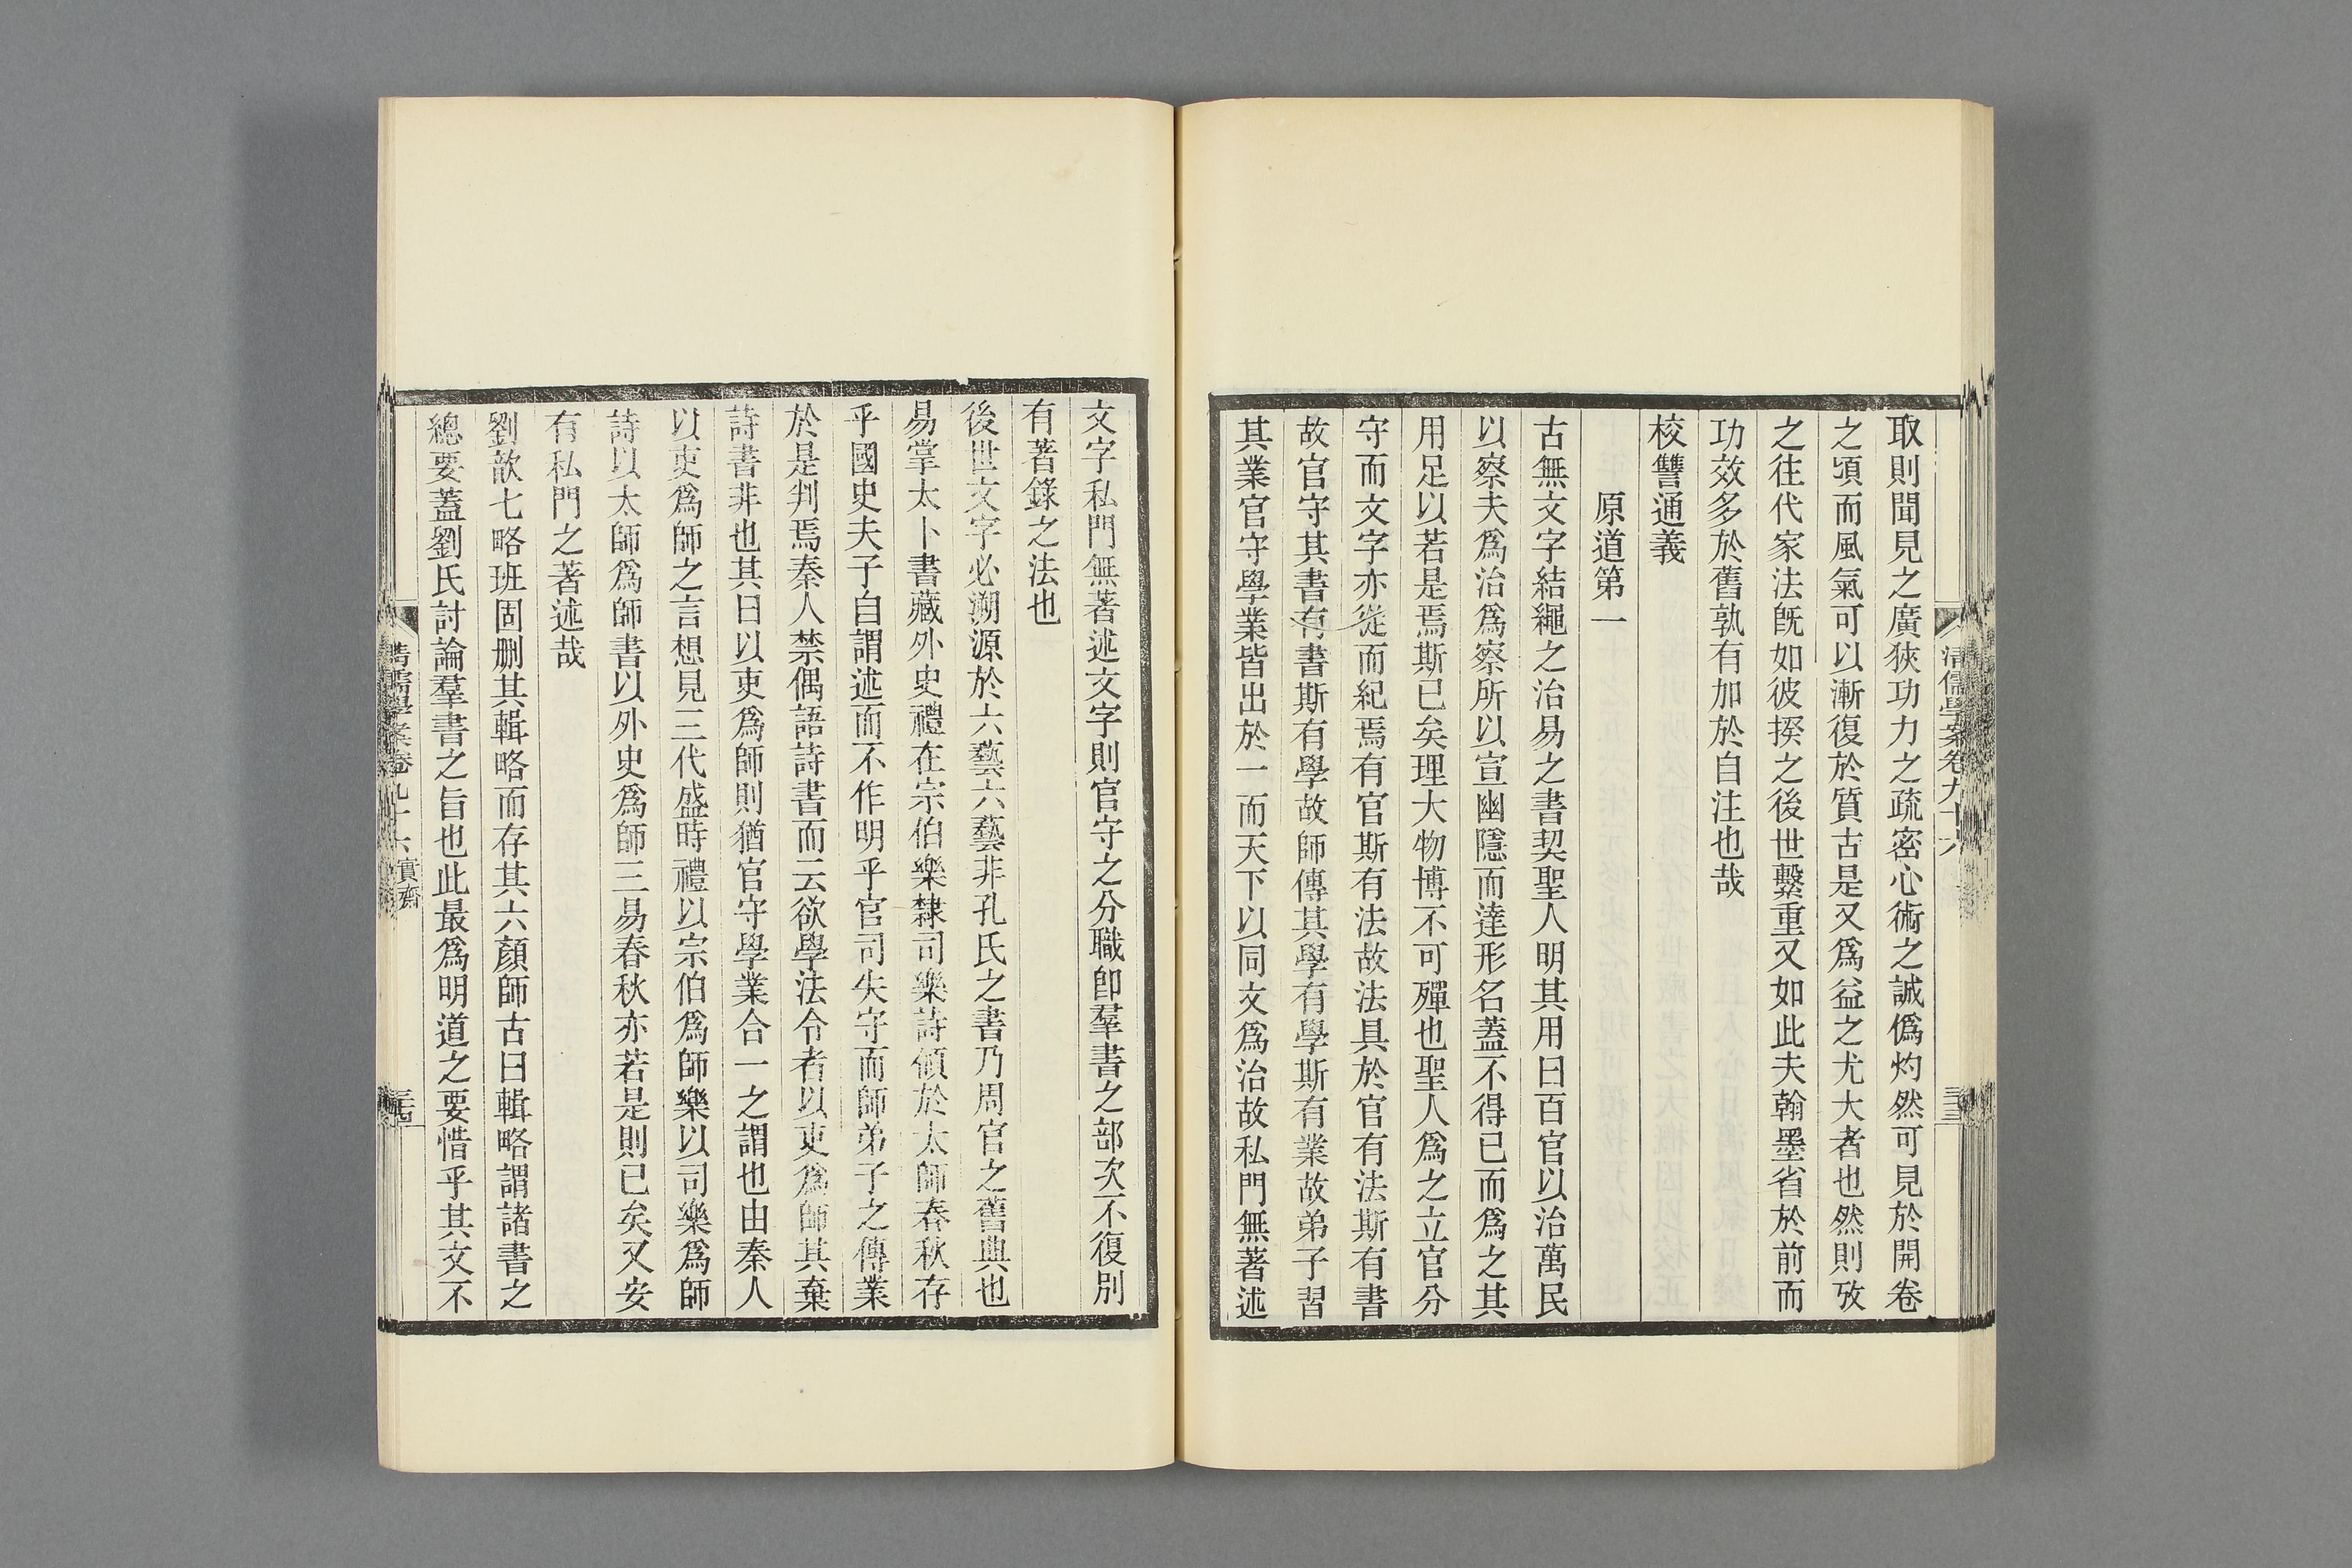 取則聞見之廣狹功力之疏密心術之誠僞灼然可見於開卷
之頃而風氣可以漸復於質古是又爲益之尤大者也然則攷
之往代家法旣如彼揆之後世繫重又如此夫翰墨省於前而
功效多於舊孰有加於自注也哉
校讐通義
原道第一
古無文字結繩之治易之書契聖人明其用曰百官以治萬民
以察夫爲治爲察所以宣幽隱而達形名蓋不得已而爲之其
用足以若是焉斯已矣理大物博不可殫也聖人爲之立官分
守而文字亦從而紀焉有官斯有法故法具於官有法斯有書
故官守其書有書斯有學故師傳其學有學斯有業故弟子習
其業官守學業皆出於一而天下以同文爲治故私門無著述
清儒學案卷九十六
三十三
文字私門無著述文字則官守之分職卽羣書之部次不復別
有著錄之法也
後世文字必溯源於六藝六藝非孔氏之書乃周官之舊典也
易掌太卜書藏外史禮在宗伯樂隸司樂詩領於太師春秋存
乎國史夫子自謂述而不作明乎官司失守而師弟子之傳業
於是判焉秦人禁偶語詩書而云欲學法令者以吏爲師其棄
詩書非也其曰以吏爲師則猶官守學業合一之謂也由秦人
以吏爲師之言想見三代盛時禮以宗伯爲師樂以司樂爲師
詩以太師爲師書以外史爲師三易春秋亦若是則已矣又安
有私門之著述哉
劉歆七略班固刪其輯略而存其六顏師古曰輯略謂諸書之
總要蓋劉氏討論羣書之旨也此最爲明道之要惜乎其文不
清儒學案卷九十六
實齋
三十四